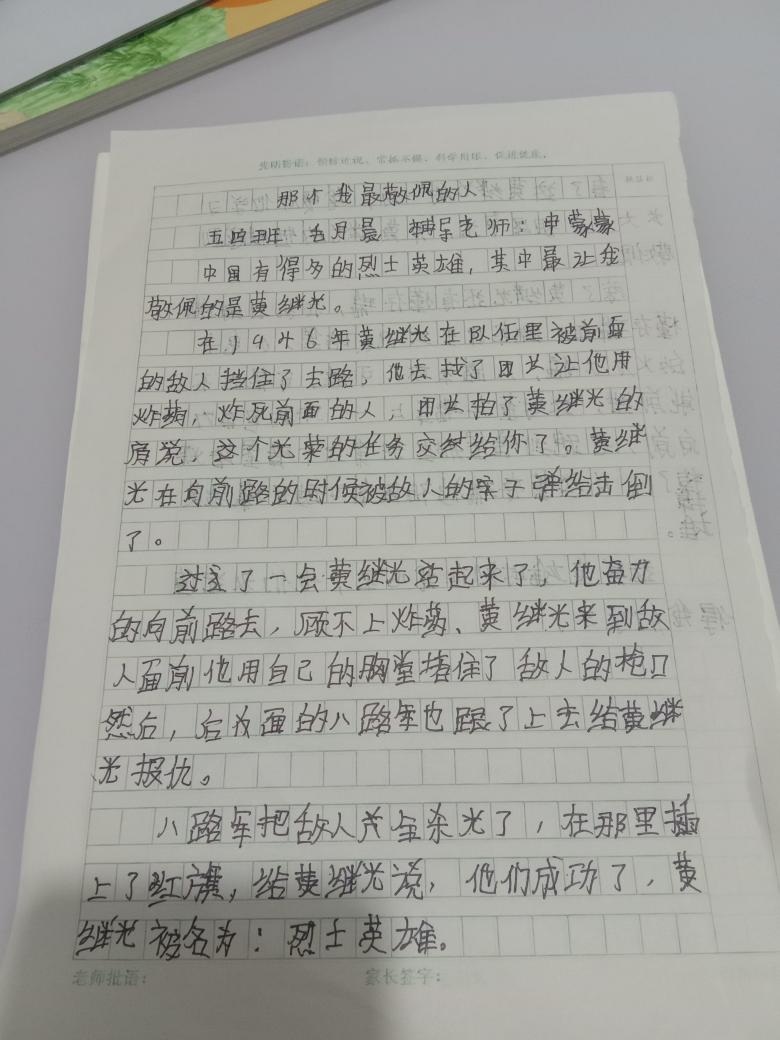 那个我最敬佩的人
五四班 毛月晨 辅导老师：申蒙蒙
中国有得多的烈士英雄，其中最让我
敬佩的是黄继光。
在1946年黄继光在队伍里被前面
的敌人挡住了去路，他去找了团长让他用
炸药，炸死前面的人，团长拍了黄继光的
肩说，这个光荣的任务交给你了。黄继
光在向前路的时候被敌人的子弹给击倒
了。
过了一会黄继光站起来了，他奋力
的向前路去，顾不上炸药、黄继光来到敌
人面前他用自己的胸堂堵住了敌人的枪口
然后，后面的八路军也跟了上去给黄继
光报仇。
八路军把敌人全杀光了，在那里插
上了红旗，给黄继光说，他们成功了，黄
继光被名为：烈士英雄。
老师批语： 家长签字：